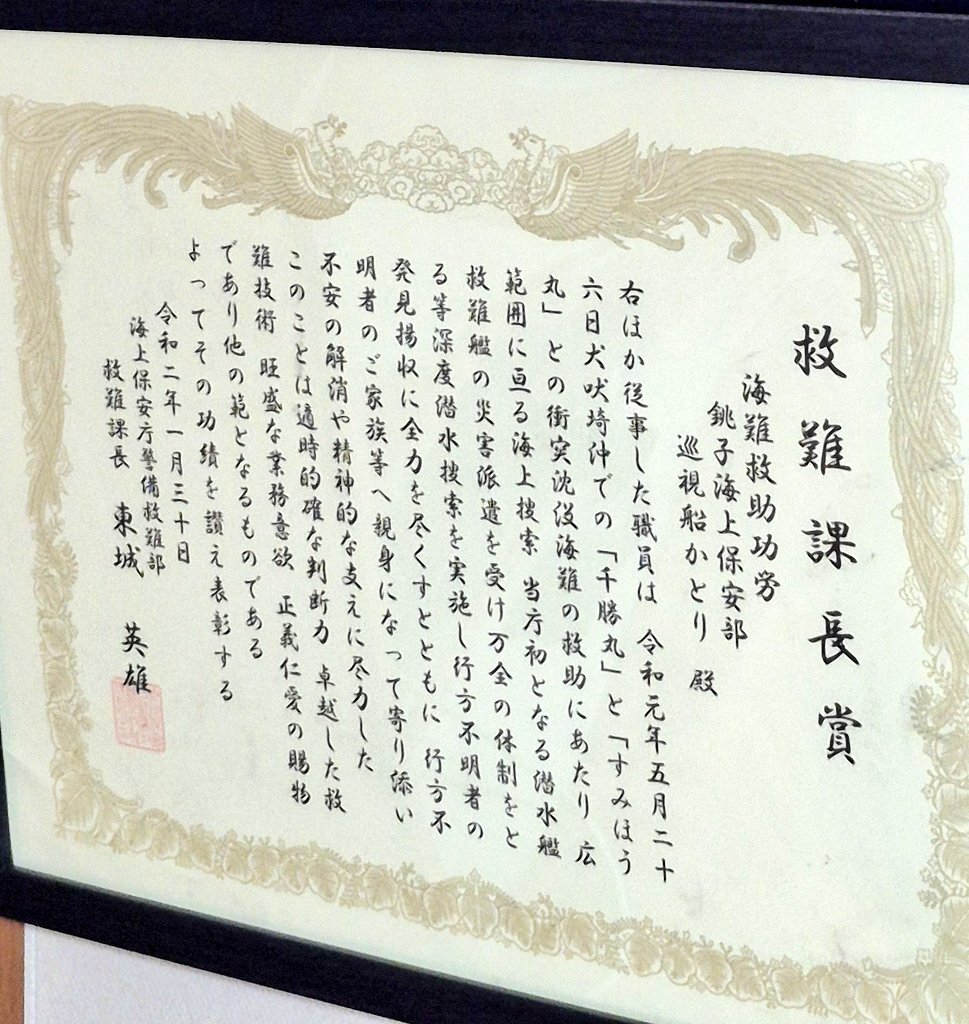 救難課長賞
海難救助功労
銚子海上保安部
巡視船かとり 殿
右ほか従事した職員は 令和元年五月二十
六日犬吠埼沖での「千勝丸」と「すみほう
丸」との衝突沈没海難の救助にあたり 広
範囲に亘る海上捜索 当庁初となる潜水艦
救難艦の災害派遣を受け万全の体制をと
る等深度潜水捜索を実施し行方不明者の
発見揚収に全力を尽くすとともに 行方不
明者のご家族等へ親身になって寄り添い
不安の解消や精神的な支えに尽力した
このことは適時的確な判断力 卓越した救
難技術 旺盛な業務意欲 正義仁愛の賜物
であり他の範となるものである
よってその功績を讃え表彰する
令和二年一月三十日
海上保安庁警備救難部
救難課長 東城 英雄